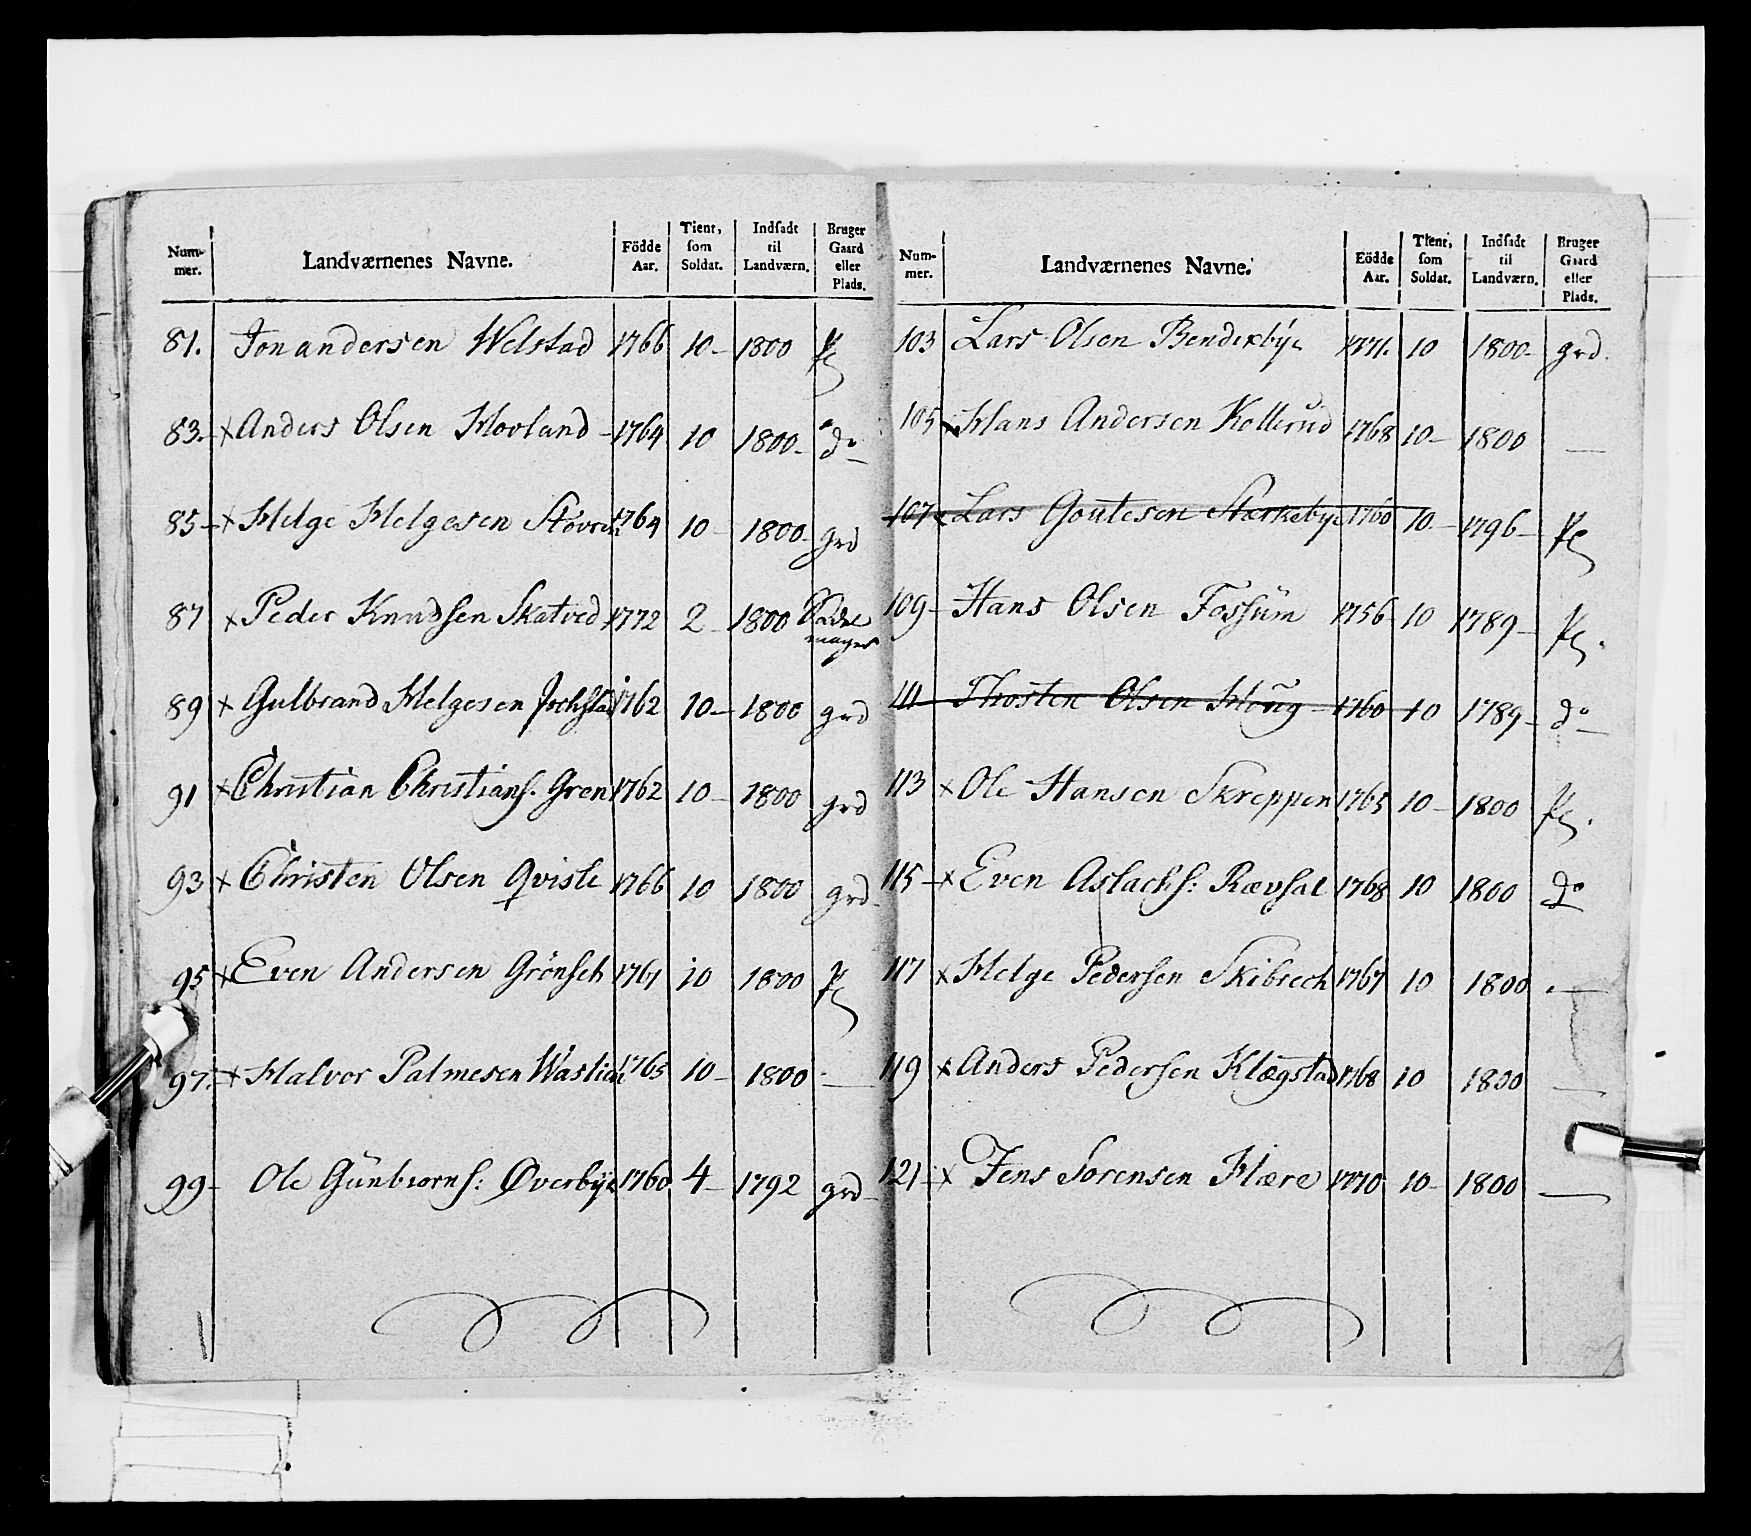 Num- mer. Landværnenes Navne. Födde Aar. Tient, som Soldat. Indsadt til Landværn. Bruger Gaard eller Plads.
81. Jon andersen Welstad 1766 10 – 1800 Pl
83. – x Anders Olsen Hovland – 1764 10 1800 – do –
85 – x Helge Helgesen 1764 10 – 1800 – grd
87 x Peder Knudsen Skatved 1772 2 – 1800
89 x Gulbrand Helgesen 1762 10 – 1800 grd
91 x Christian Christians. Gren 1762 10 – 1800 grd
93 x Christen Olsen Qvisle 1766 10 1800 grd –
95 x Even Andersen Grönseh 1761 10 1800 Pl
97. – x Halvor Palmesen 1765 10 – 1800 –
99 – Ole Günbiörns: Øverbÿe 1760 4 – 1792 grd –
Num- mer. Landværnenes Navne. Födde Aar. Tient, som Soldat. Indsadt til Landværn. Bruger Gaard eller Plads.
103 Lars Olsen Bendexbÿe 1771. 10 1800 – grd.
105 x Hans Andersen Kollerud 1768 10 – 1800 —
107 x Lars Goutesen Stærkebye 1760 10 – 1796 – Pl
109 – Hans Olsen Fossüm 1756 10 1789 – Pl.
111 – Thosten Olsen Houg – 1760 10 1789 – do –
113 x Ole Hansen Skreppen 1765 10 – 1800 Pl.
115 – x Even Aslachs: Rævsal 1768 10 1800 do
117 x Helge Pedersen Skibrech 1767 10 1800 —
119 x Anders Pedersen Klægstad 1768 10 1800 —
121 – x Jens Sorensen Hære 1770 10 – 1800 —